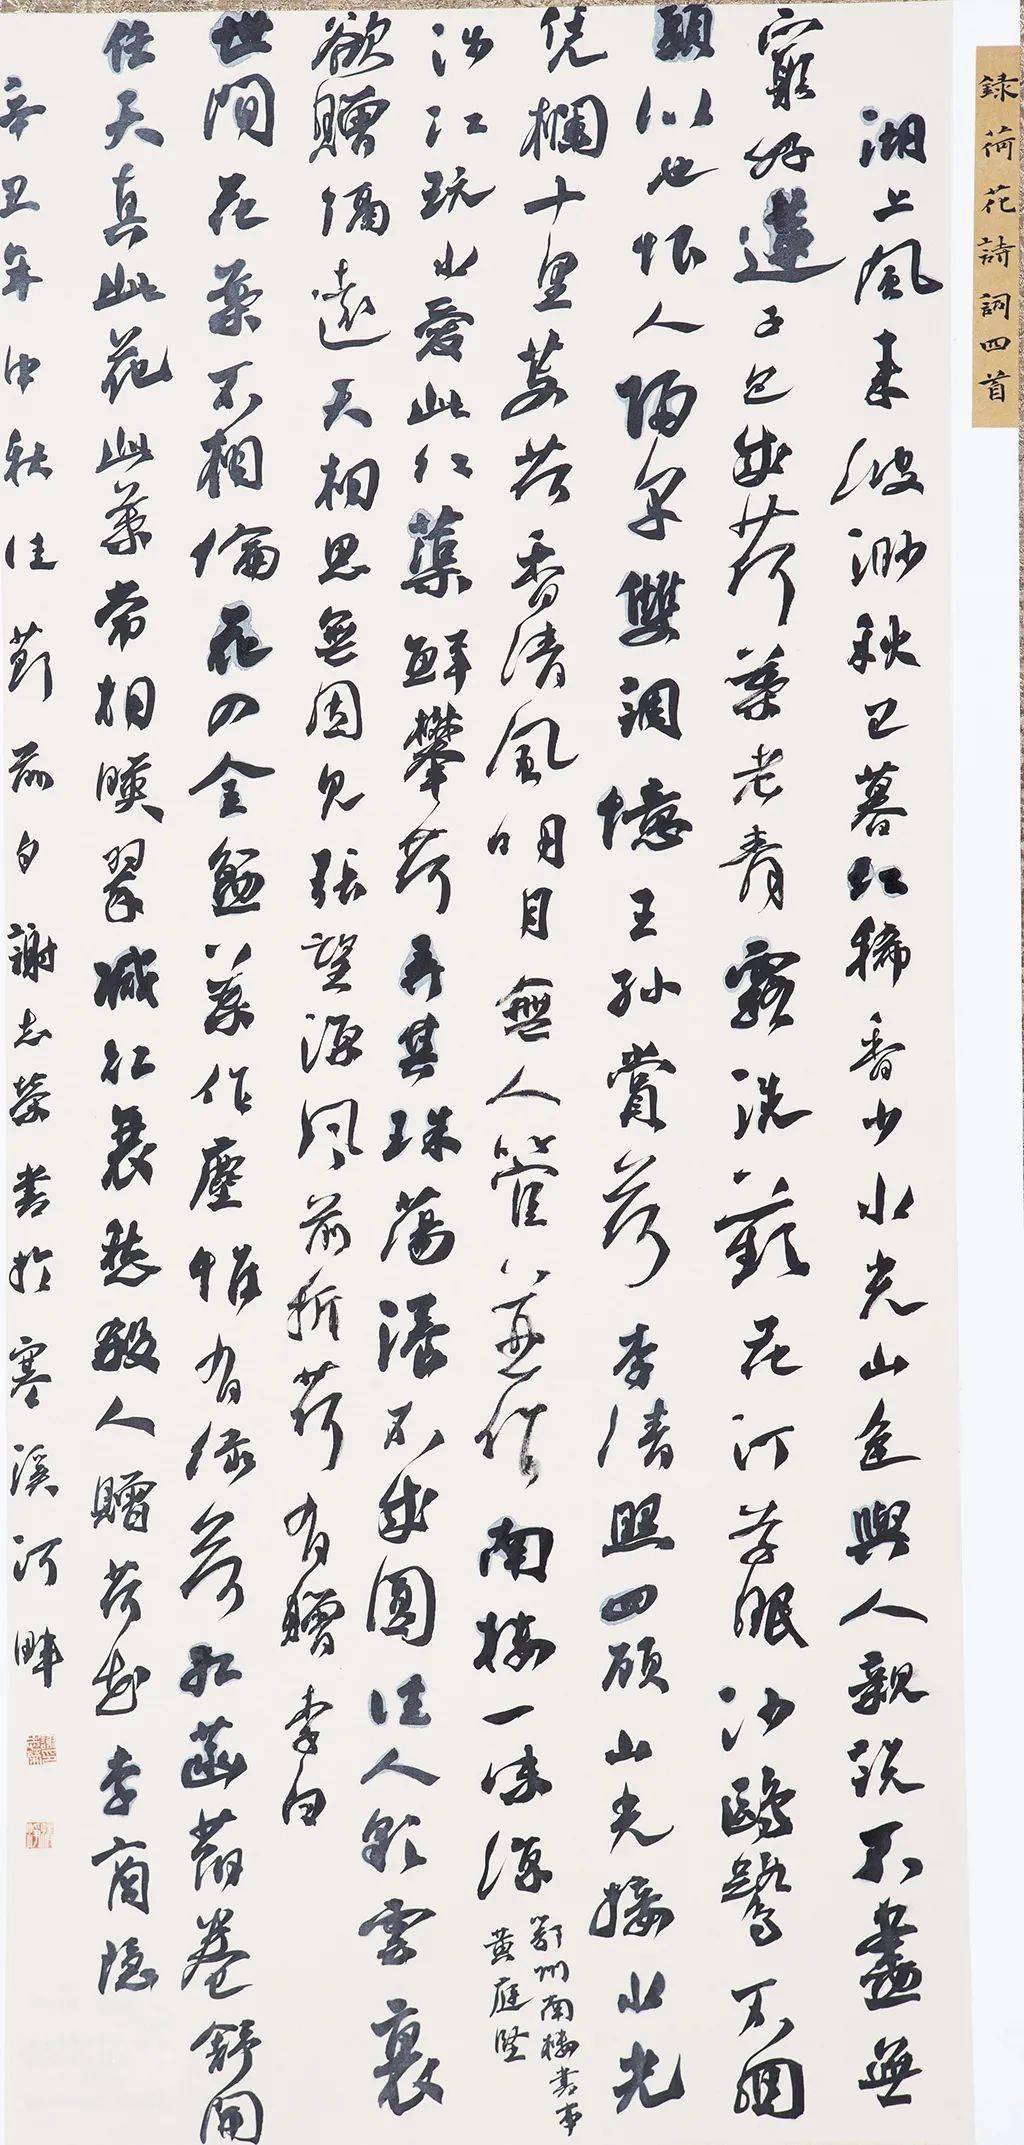 録荷花詩詞四首
湖上風來波渺秋已暮紅稀香少水光山色與人親説不盡無
窮好蓮子已成荷葉老青露洗蘋花汀草眠沙鷗鷺不囘
頭似也恨人歸早雙調憶王孫賞荷李清照四顧山光接水光
凭欄十里芰荷香清風明月無人管並作南樓一味涼鄂州南樓書事
黄庭堅
涉江玩水愛此紅蕖鮮攀荷弄其珠蕩漾不成圓佳人彩雲裏
欲贈隔遠天相思無因見悵望涼風前折荷有贈李白
世間花葉不相倫花入金盆葉作塵惟有緑荷紅菡萏卷舒開
任天真此花此葉常相映翠減紅衰愁殺人贈荷花李商隐
辛丑年中秋佳節前夕謝志榮書於寒溪河畔